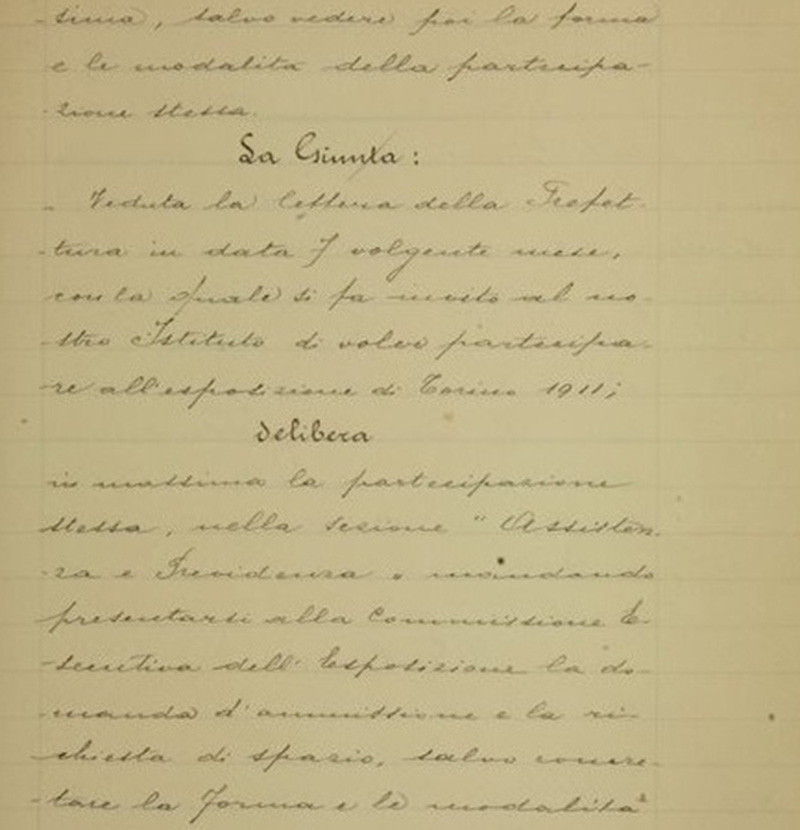 -sima, salvo vedere poi la forma
e le modalità della partecipa-
-zione stessa.
La Giunta:
- Veduta la lettera della Prefet-
-tura in data 7 volgente mese,
con la quale si fa invito al no-
-stro Istituto di voler partecipa-
-re all'esposizione di Torino 1911;
delibera
in massima la partecipazione
stessa, nella sezione "Assisten-
-za e Previdenza" mandando
presentarsi alla Commissione E-
-secutiva dell'Esposizione la do-
-manda d'ammissione e la ri-
-chiesta di spazio, salvo concre-
-tare la forma e le modalità